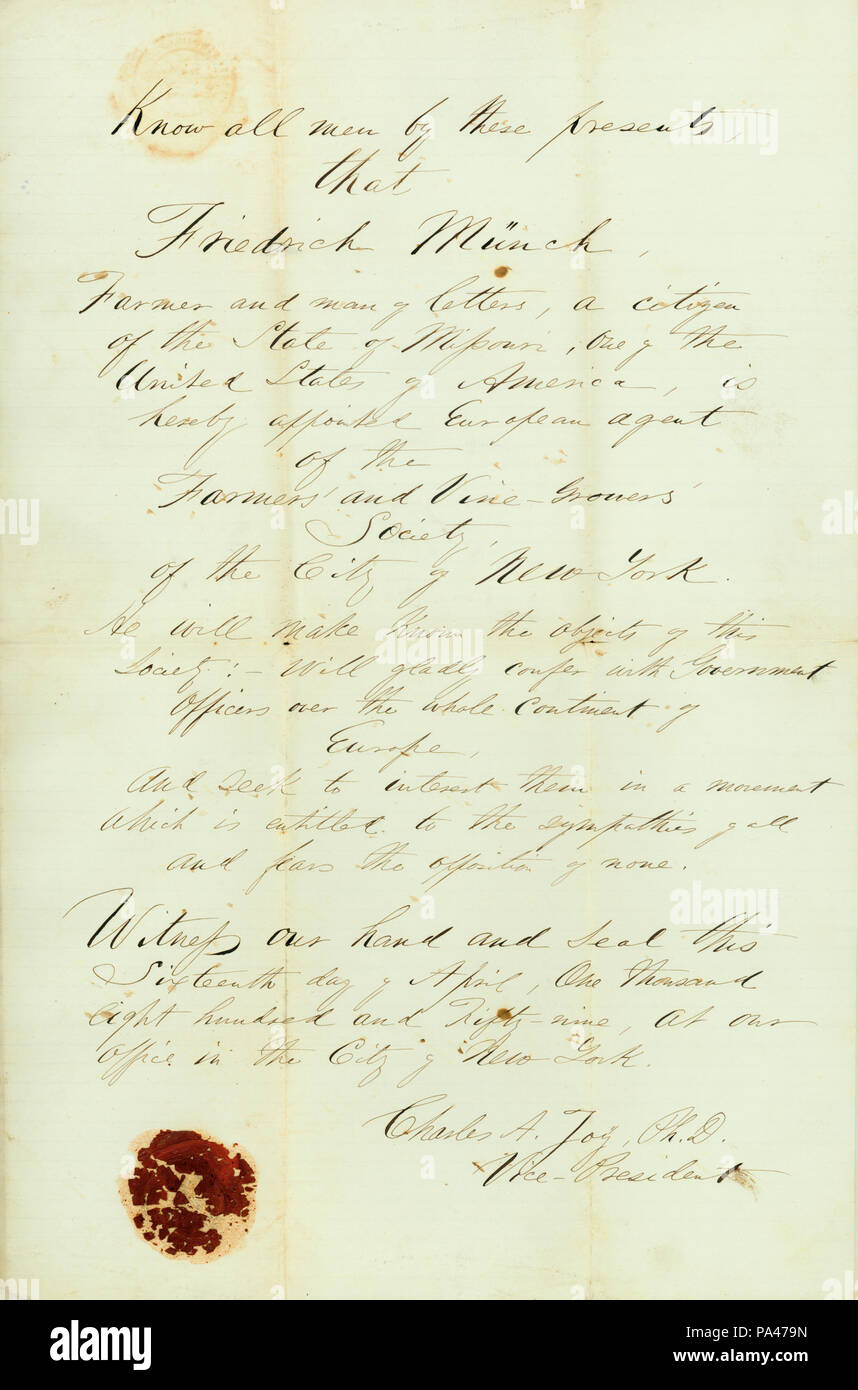 Know all men by these presents,
that
Friedrich Münch,
Farmer and man of letters, a citizen
of the State of Missouri, One of the
United States of America, is
hereby appointed European agent
of the
Farmers' and Vine-Growers'
Society,
of the City of New York.
He will make known the objects of this
Society: - Will gladly confer with Government
Officers over the whole Continent of
Europe,
And seek to interest them in a movement
which is entitled to the sympathies of all
and fears the opposition of none.
Witness our hand and seal this
Sixteenth day of April, One thousand
eight hundred and Fifty-nine, at our
Office in the City of New York.
Charles A. Joy, Ph.D.
Vice-President
alamy
Image ID: PA479N
www.alamy.com